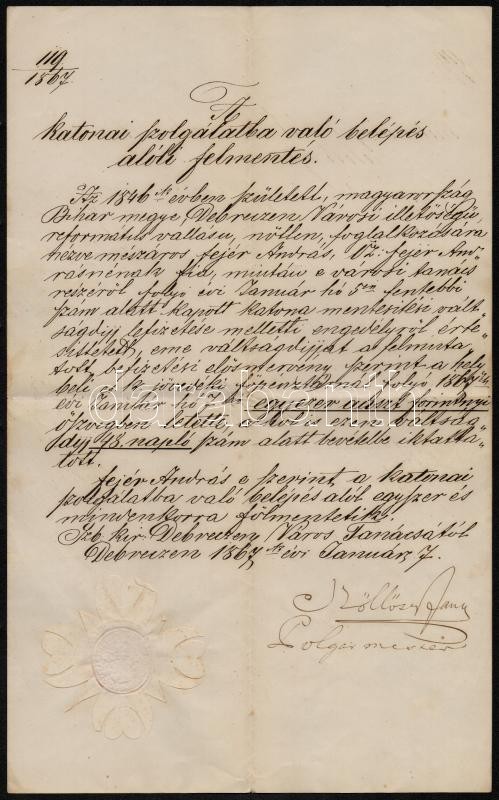 119
1867.
A
katonai szolgálatba való belépés
alóli felmentés.
Az 1846ik évben született, magyarország
Bihar megye, Debreczen Városi illetőségű,
református vallásu, nőtlen, foglalkozására
nézve mészáros fejér András, Vz: fejér And„
rásnénak fia, miután e városi tanács
részéről folyó évi Január hó 5én fentebbi
szám alatt kapott katona mentesitési vált„
ságdijj lefizetése melletti engedélyről érte„
sittetett, eme váltságdijját a felmuta„
tott befizetési elösmervény szerint a hely„
beli cs. k.
évi Január hó egyezer osztrák forintnyi
összegben letette,
dijj 48. napló szám alatt bevételbe iktatta„
tott.
fejér András e szerint a katonai
szolgálatba való belépés alól egyszer és
mindenkorra fölmentetik.
Szb. kir: Debreczen Város Tanácsától
Debreczen 1867ik évi Január 7.
Polgármester
darabanth